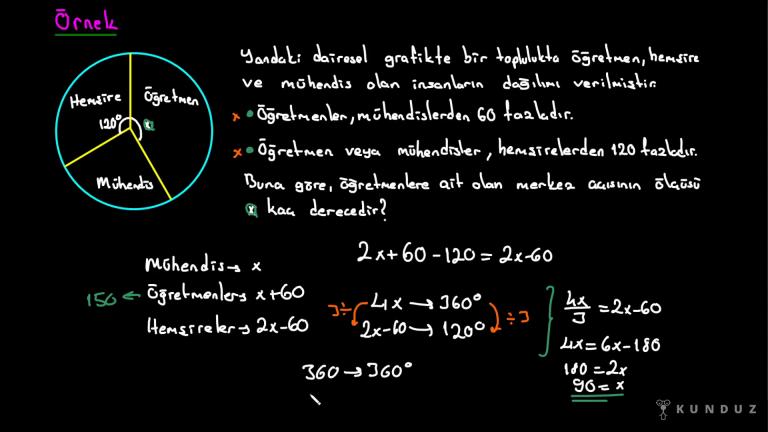 Örnek
Yandaki dairesel grafikte bir toplulukta öğretmen, hemşire
ve mühendis olan insanların dağılımı verilmiştir.
x • Öğretmenler, mühendislerden 60 fazladır.
x • Öğretmen veya mühendisler, hemşirelerden 120 fazladır.
Buna göre, öğretmenlere ait olan merkez açısının ölçüsü
x kaç derecedir?
Hemşire
Öğretmen
120°
x
Mühendis
2x+60-120=2x-60
Mühendis→ x
150 ← Öğretmenler→ x+60
Hemşireler→ 2x-60
3÷ 4x → 360° ÷3
2x-60→ 120°
360→360°
4x/3 = 2x-60
4x = 6x-180
180 = 2x
90 = x
KUNDUZ